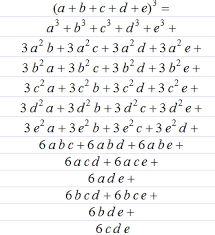 (a + b + c + d + e)³ =
a³ + b³ + c³ + d³ + e³ +
3 a² b + 3 a² c + 3 a² d + 3 a² e +
3 b² a + 3 b² c + 3 b² d + 3 b² e +
3 c² a + 3 c² b + 3 c² d + 3 c² e +
3 d² a + 3 d² b + 3 d² c + 3 d² e +
3 e² a + 3 e² b + 3 e² c + 3 e² d +
6 a b c + 6 a b d + 6 a b e +
6 a c d + 6 a c e +
6 a d e +
6 b c d + 6 b c e +
6 b d e +
6 c d e